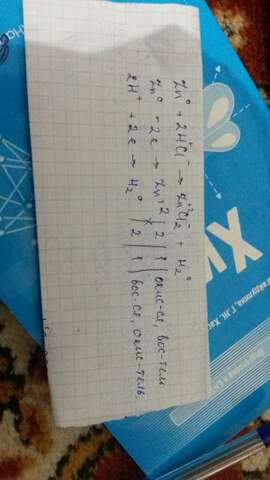 Zn⁰ + 2H⁺Cl⁻ → Zn⁺²Cl₂⁻ + H₂⁰
Zn⁰ - 2e → Zn⁺² | 2 | 1 | окис-ся, вос-тель
2H⁺ + 2e → H₂⁰ | 2 | 1 | вос-ся, окис-тель.